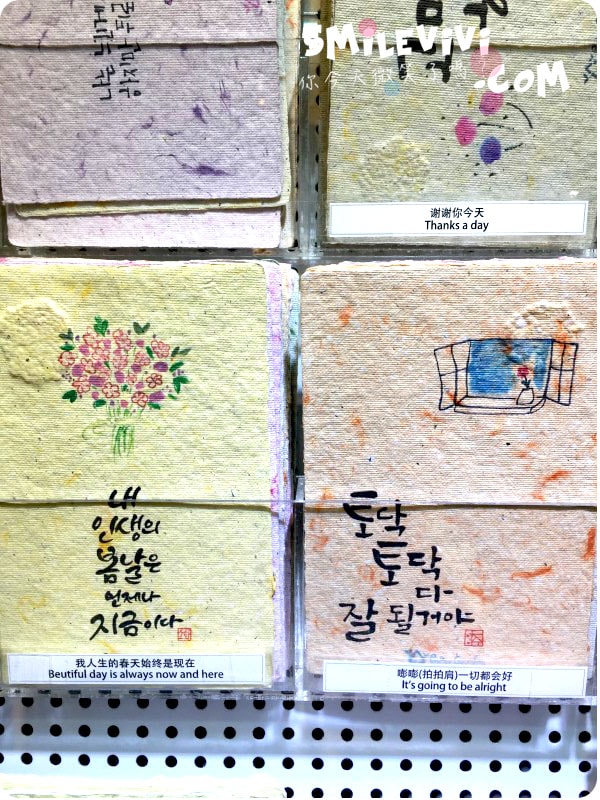 SMiLEViVi
.COM
你今天微笑了嗎?
谢谢你今天
Thanks a day
내
인생의
봄날은
언제나
지금이다
我人生的春天始终是现在
Beutiful day is always now and here
토닥
토닥
다
잘 될거야
嘭嘭(拍拍肩)一切都会好
It's going to be alright